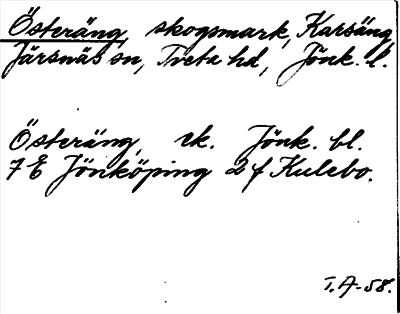 Österäng, skogsmark, Karsäng,
Järsnäs sn, Tveta hd, Jönk. l.
Österäng, ek. Jönk. bl.
7 E Jönköping 2 f Kulebo.
T.A-58.